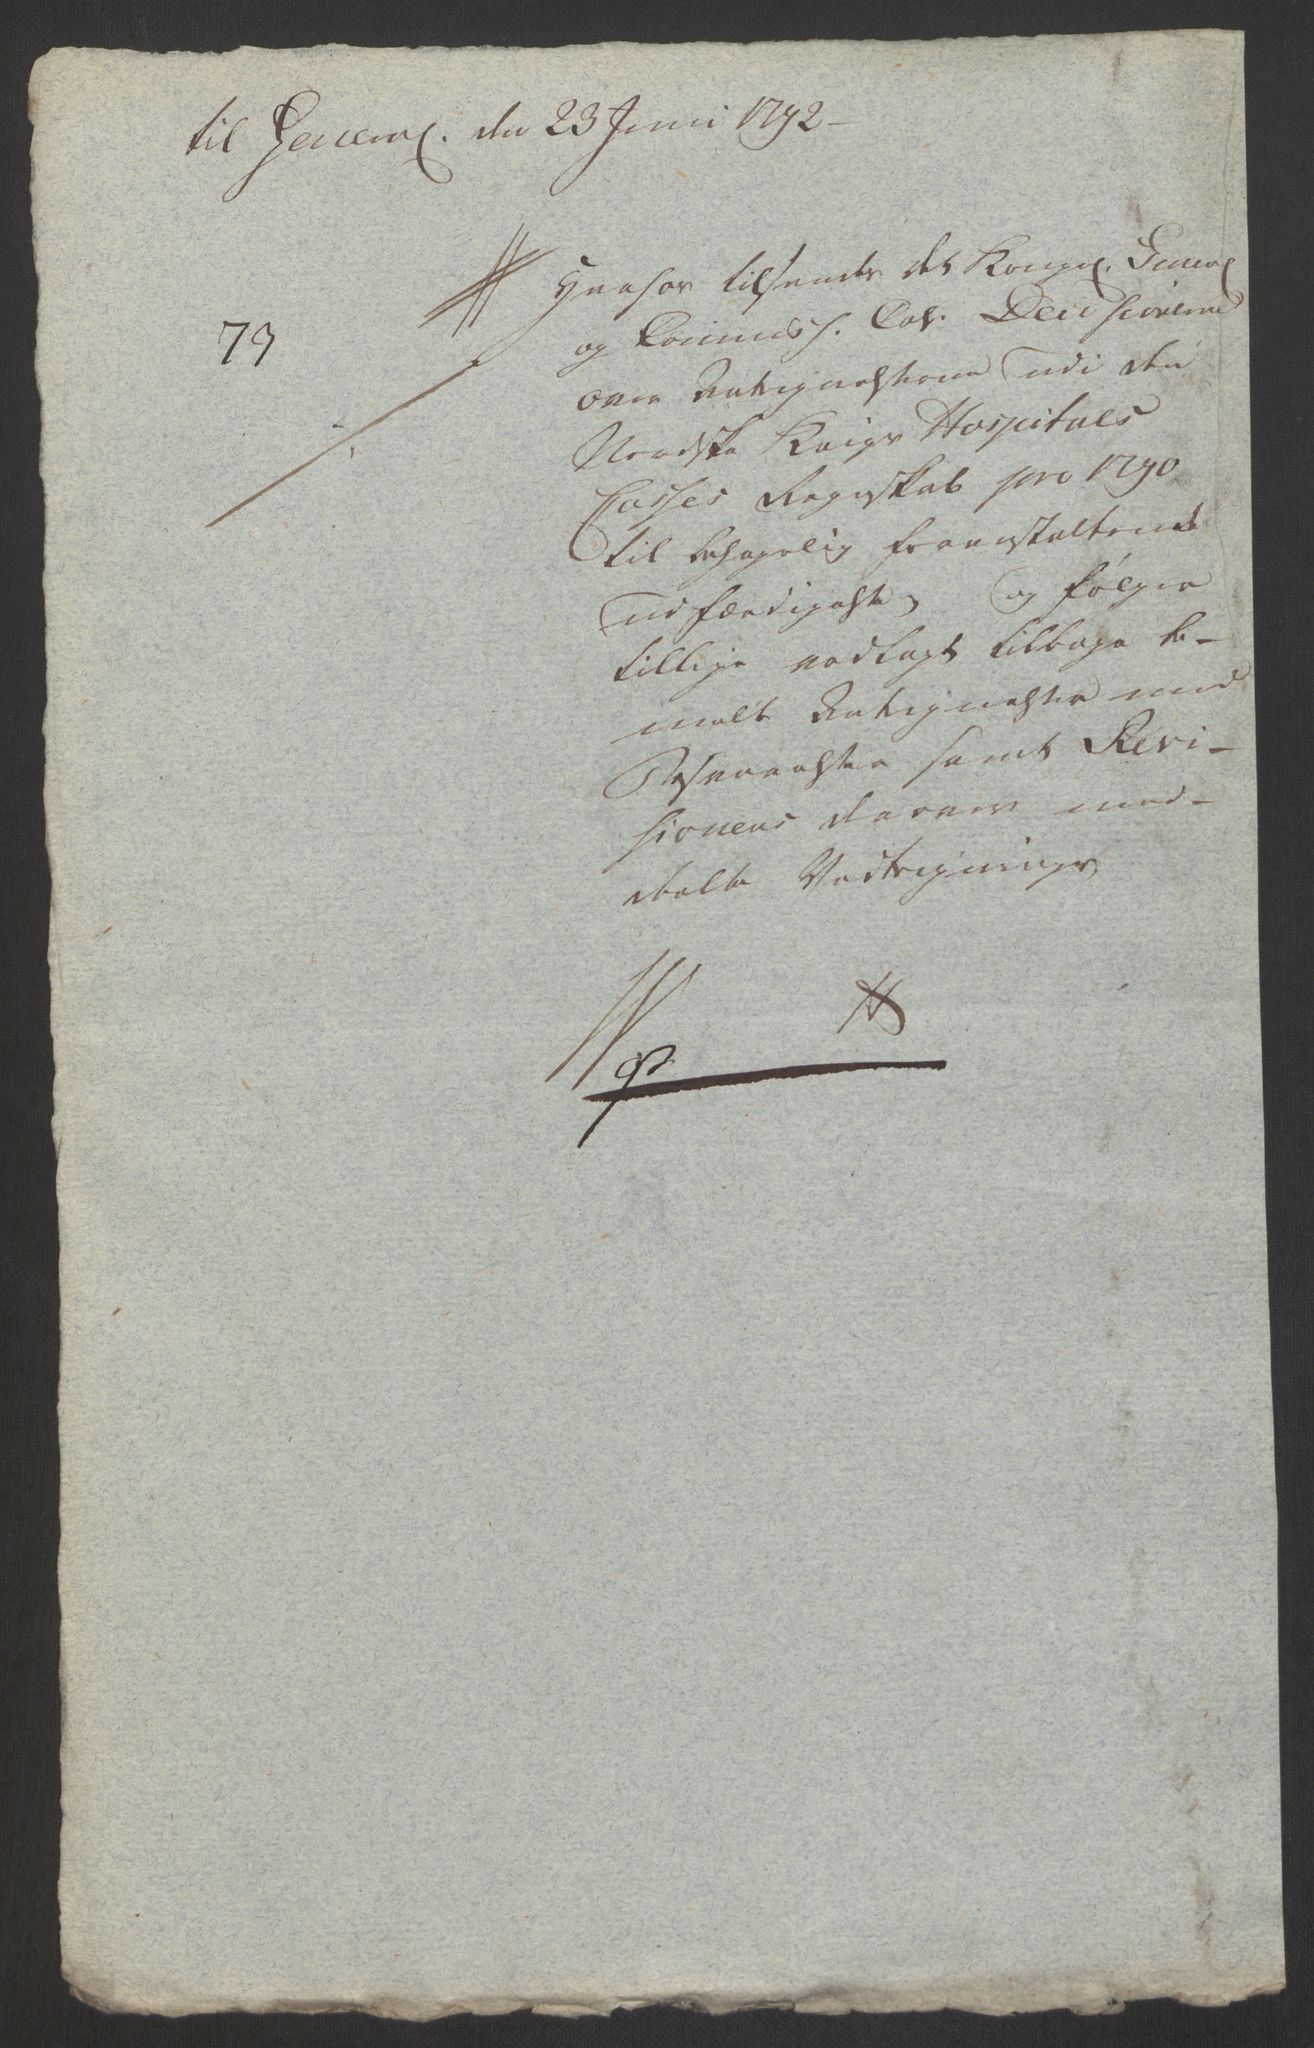 til General. den 23 Junii 1792 –
73
Herfor tilsendes det Kongel. General
og Commiss. Col. Decisionerne
over Antegnelserne udi den
Nordske Krigs Hospitals
Casses Regnskab pro 1790
til behagelig foranstaltende
udfærdigelse, og følger
tillige vedlagt tilbage be-
melte Antegnelser med
Besvarelser samt Revi-
sionens derover med-
deelte Vedtegninger